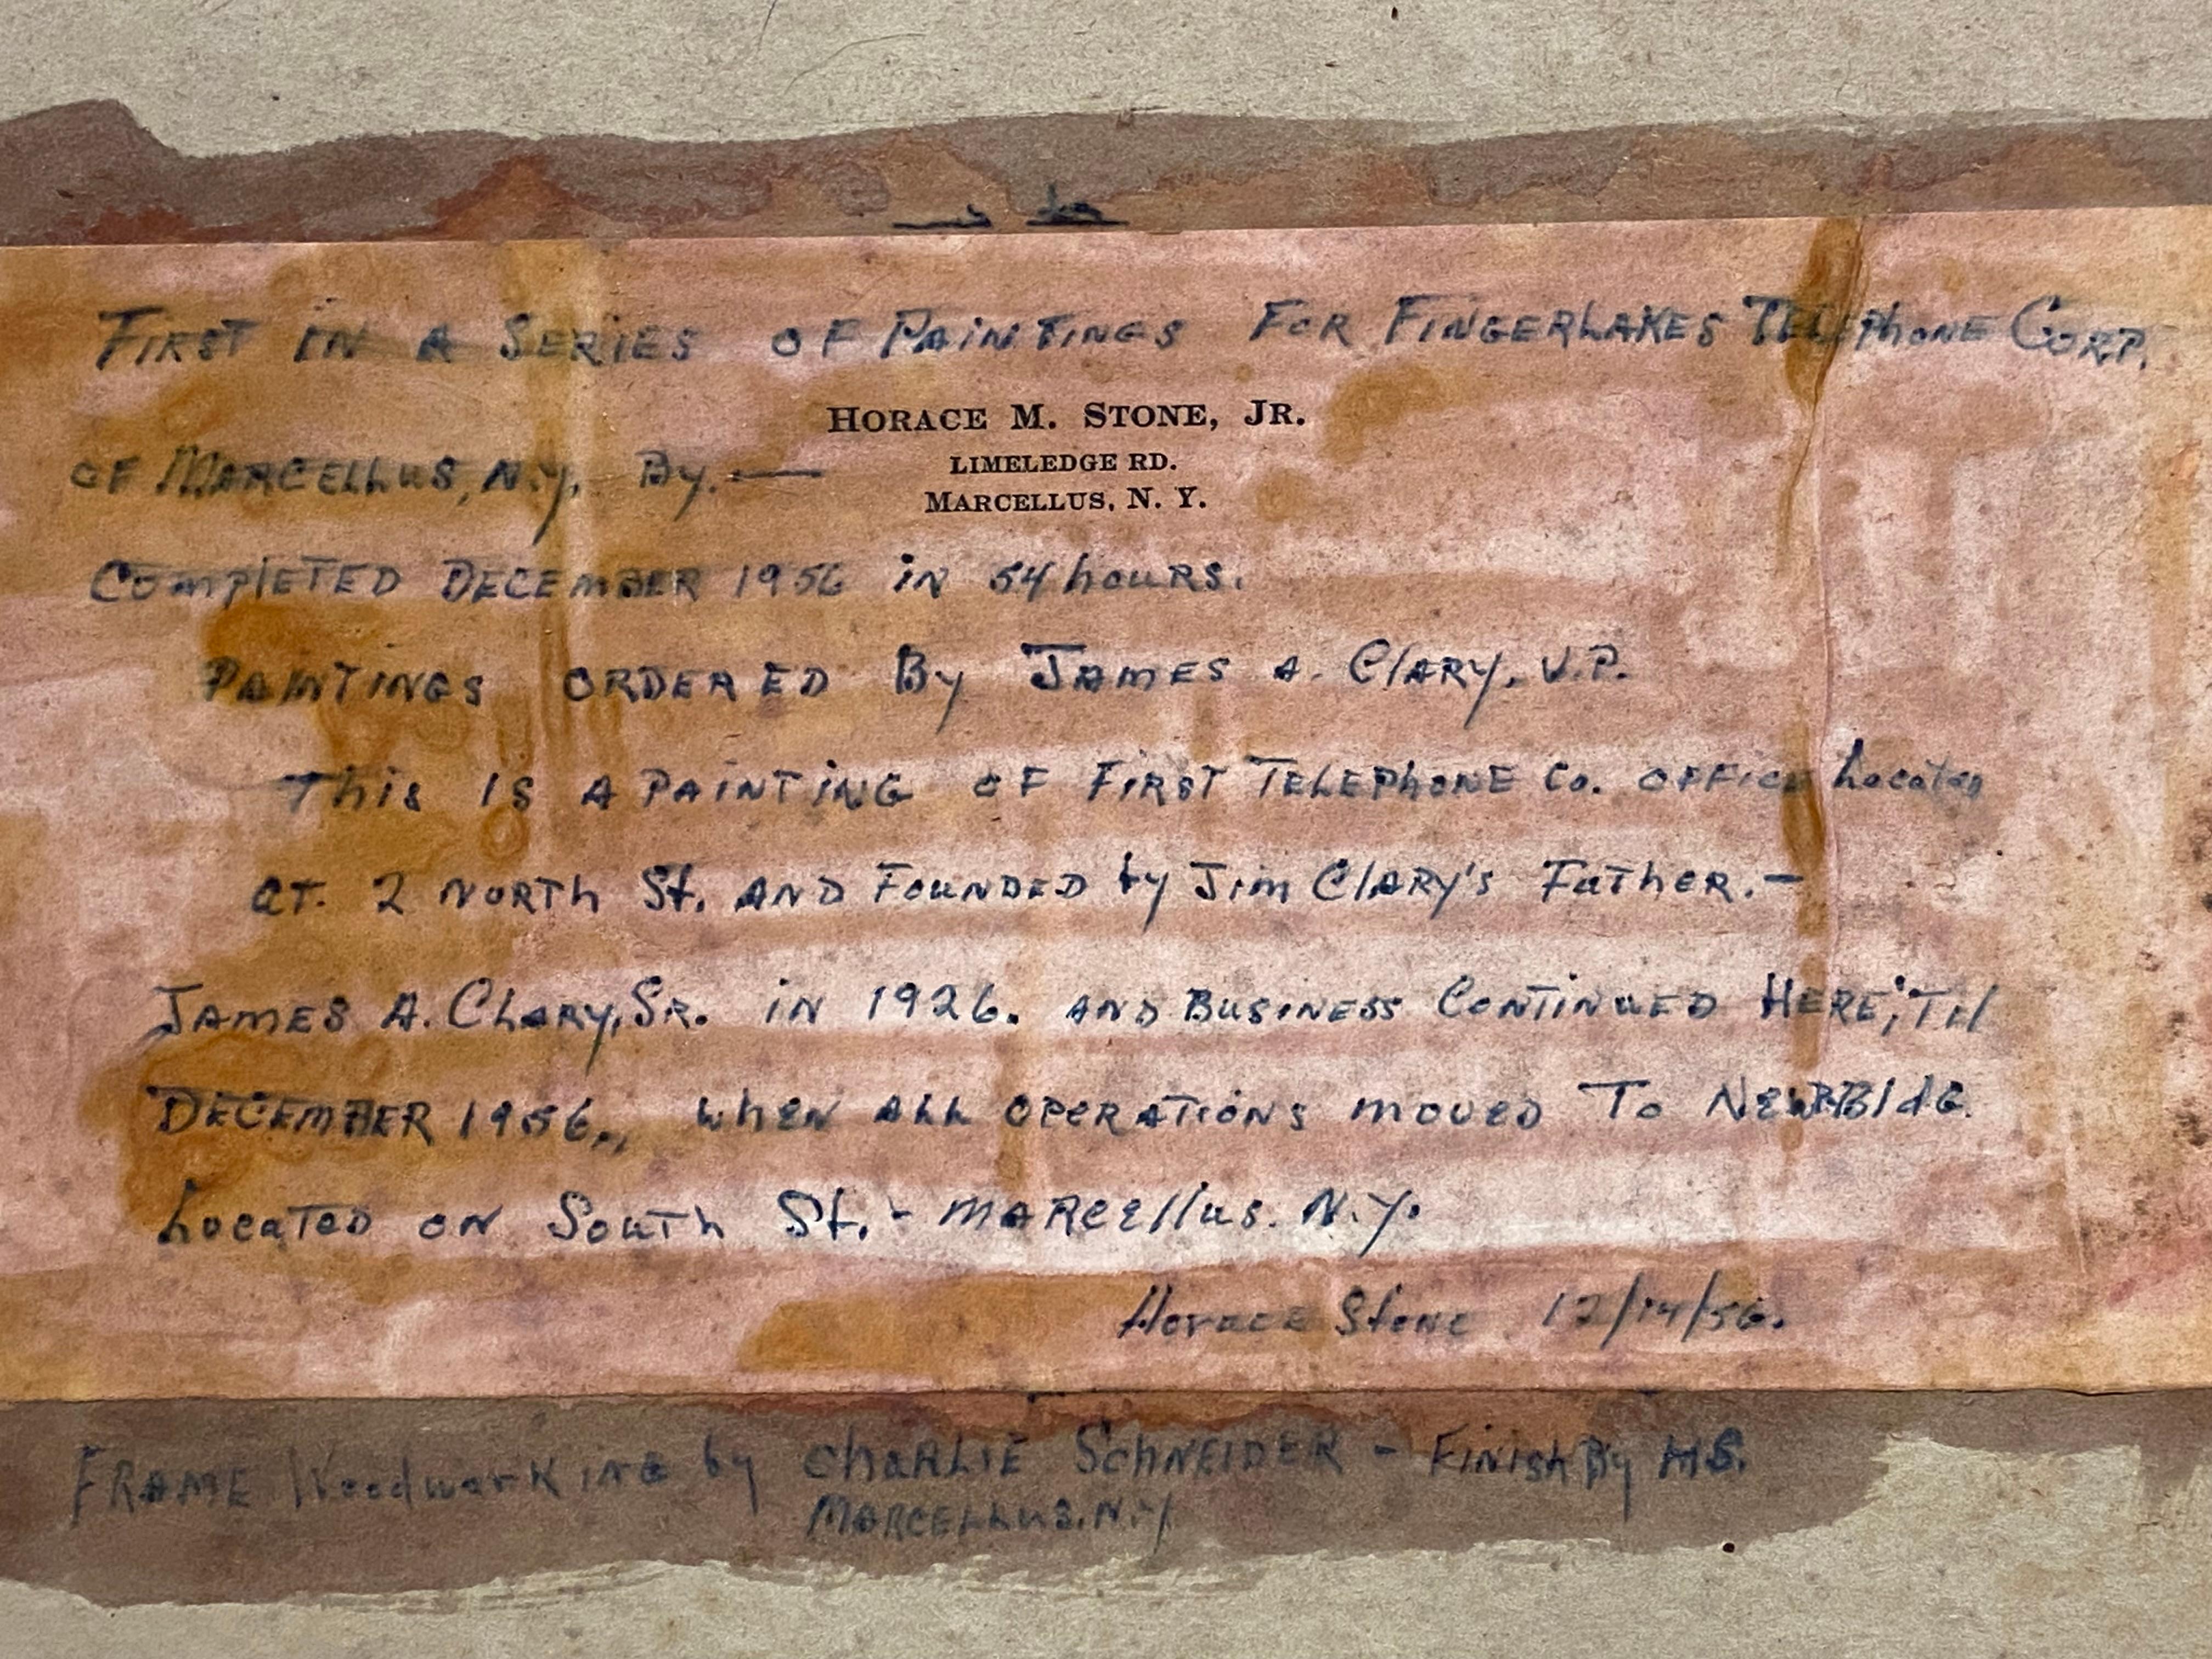 First in a Series of Paintings For Fingerlakes Telephone Corp.
Horace M. Stone, Jr.
of Marcellus, N.Y. By. —
Limeledge Rd.
Marcellus, N. Y.
Completed December 1956 in 54 hours.
Paintings ordered By James A. Clary, V.P.
This is a painting of First Telephone Co. office Located
at. 2 North St. and Founded by Jim Clary's Father. —
James A. Clary, Sr. in 1926. and Business Continued Here; 'Til
December 1956,, when all operations moved To New Bldg.
Located on South St. - Marcellus. N.Y.
Horace Stone 12/14/56.
Frame Woodworking by Charlie Schneider - Finish By H.S.
Marcellus. N.Y